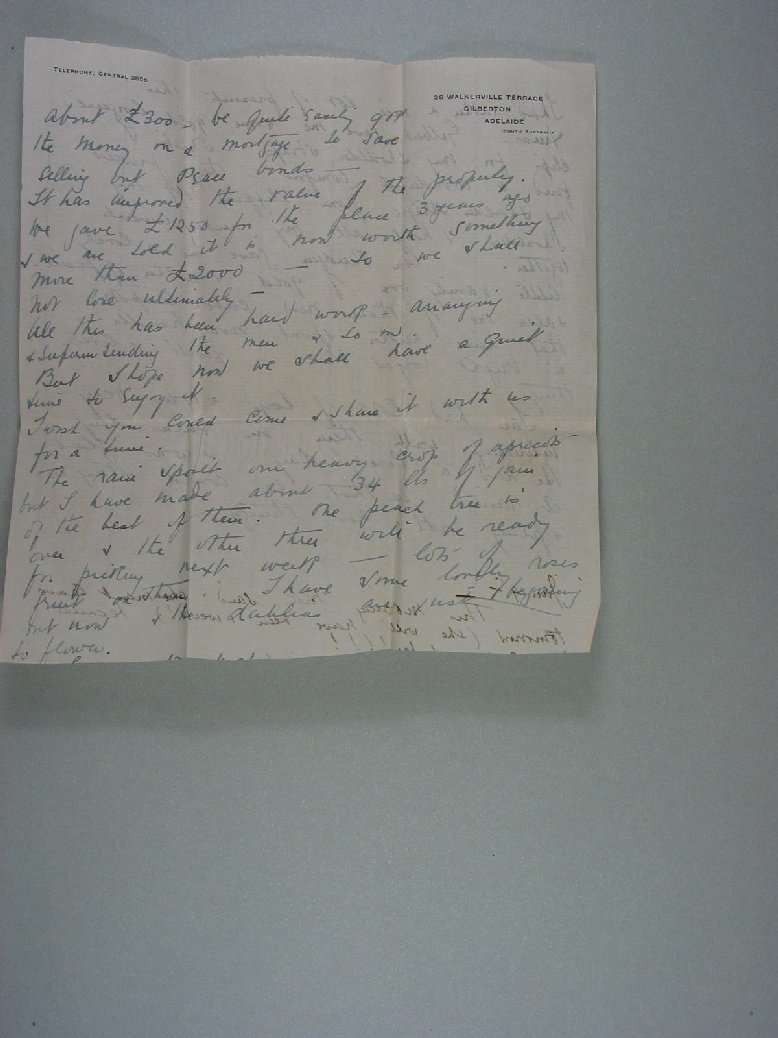 TELEPHONE, CENTRAL 3868
26 WALKERVILLE TERRACE
GILBERTON
ADELAIDE
SOUTH AUSTRALIA
about £300 - we quite easily got
the money on a mortgage to save
selling out Peace bonds —
It has improved the value of the property.
We gave £1250 for the place 3 years ago
& we are told it is now worth something
more than £2000 — so we shall
not lose ultimately —
All this has been hard work - arranging
& superintending the men & so on.
But I hope now we shall have a quiet
time to enjoy it
I wish you could come & share it with us
for a time.
The rain spoilt our heavy crop of apricots
but I have made about 34 lbs of jam
of the best of them. One peach tree is
over & the other three will be ready
for picking next week — lots of
fruit on them. I have some lovely roses
out now & the dahlias are just beginning
to flower.